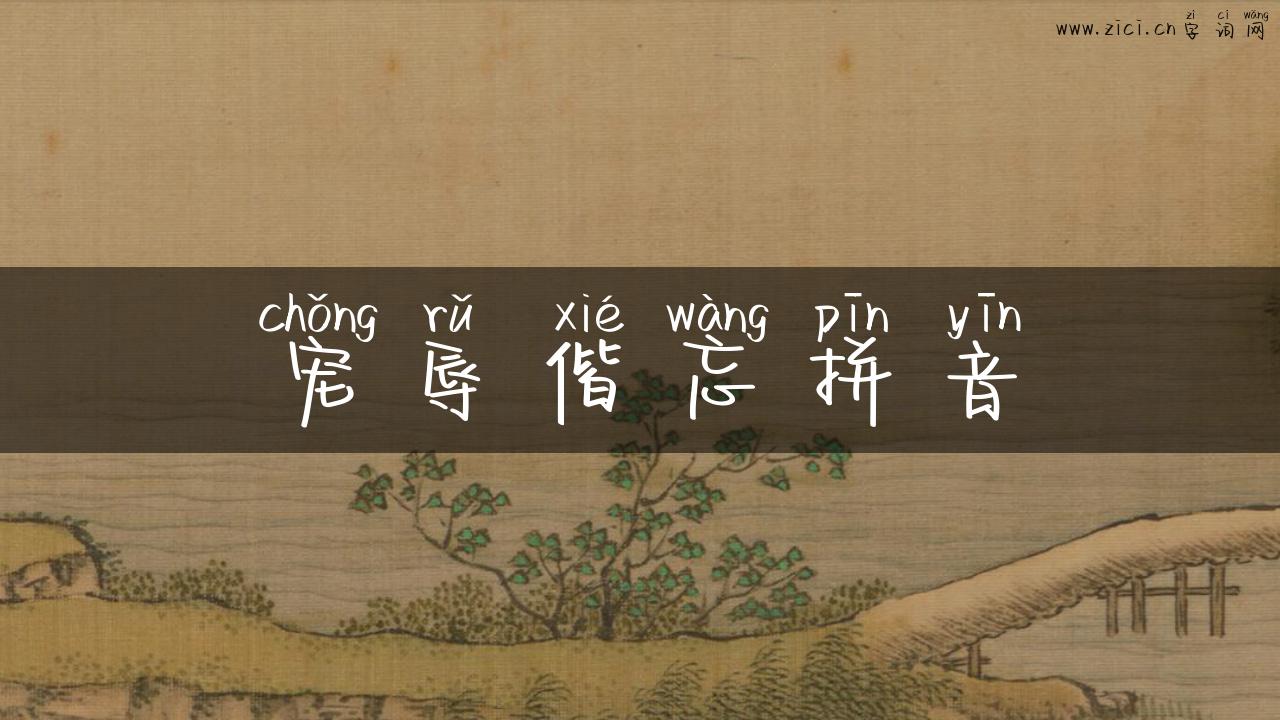 zì cí wǎng
www.zici.cn 字 词 网
chǒng rǔ xié wàng pīn yīn
宠 辱 偕 忘 拼 音